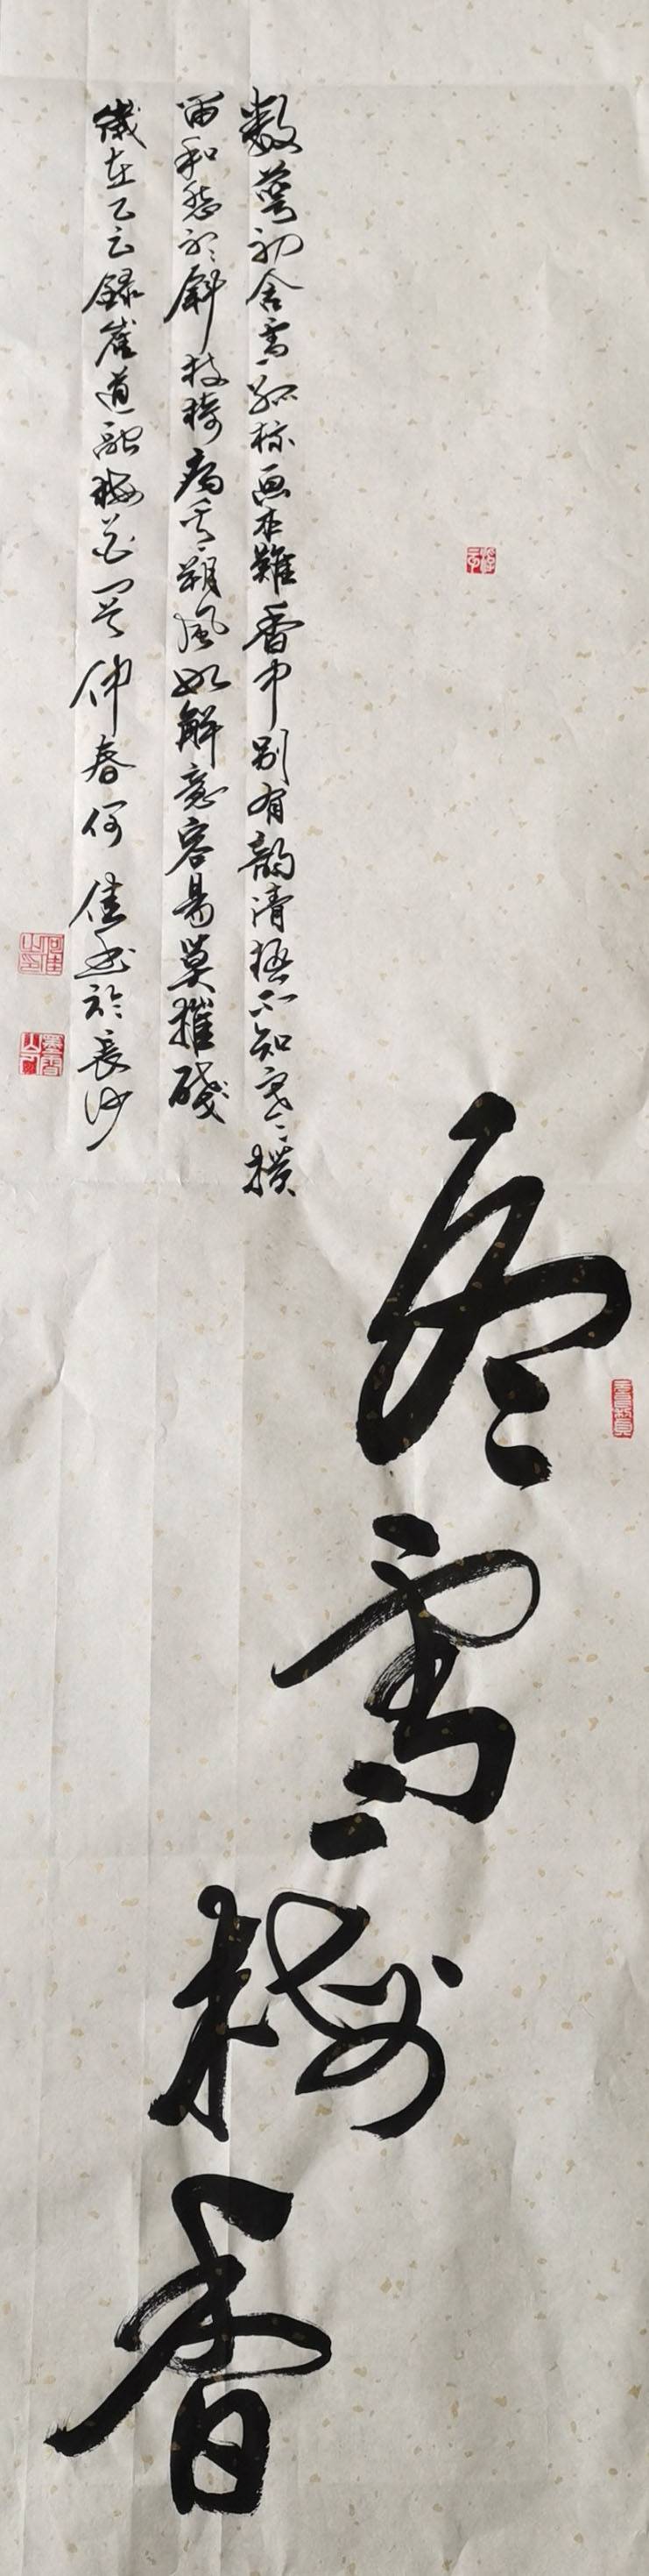 雪梅香
数萼初含雪孤标画本難香中别有韵清極不知寒横
笛和愁听斜枝倚病看朔風如解意容易莫摧殘
歲在乙巳録崔道融梅花一首仲春何佳書於長沙
何佳之印